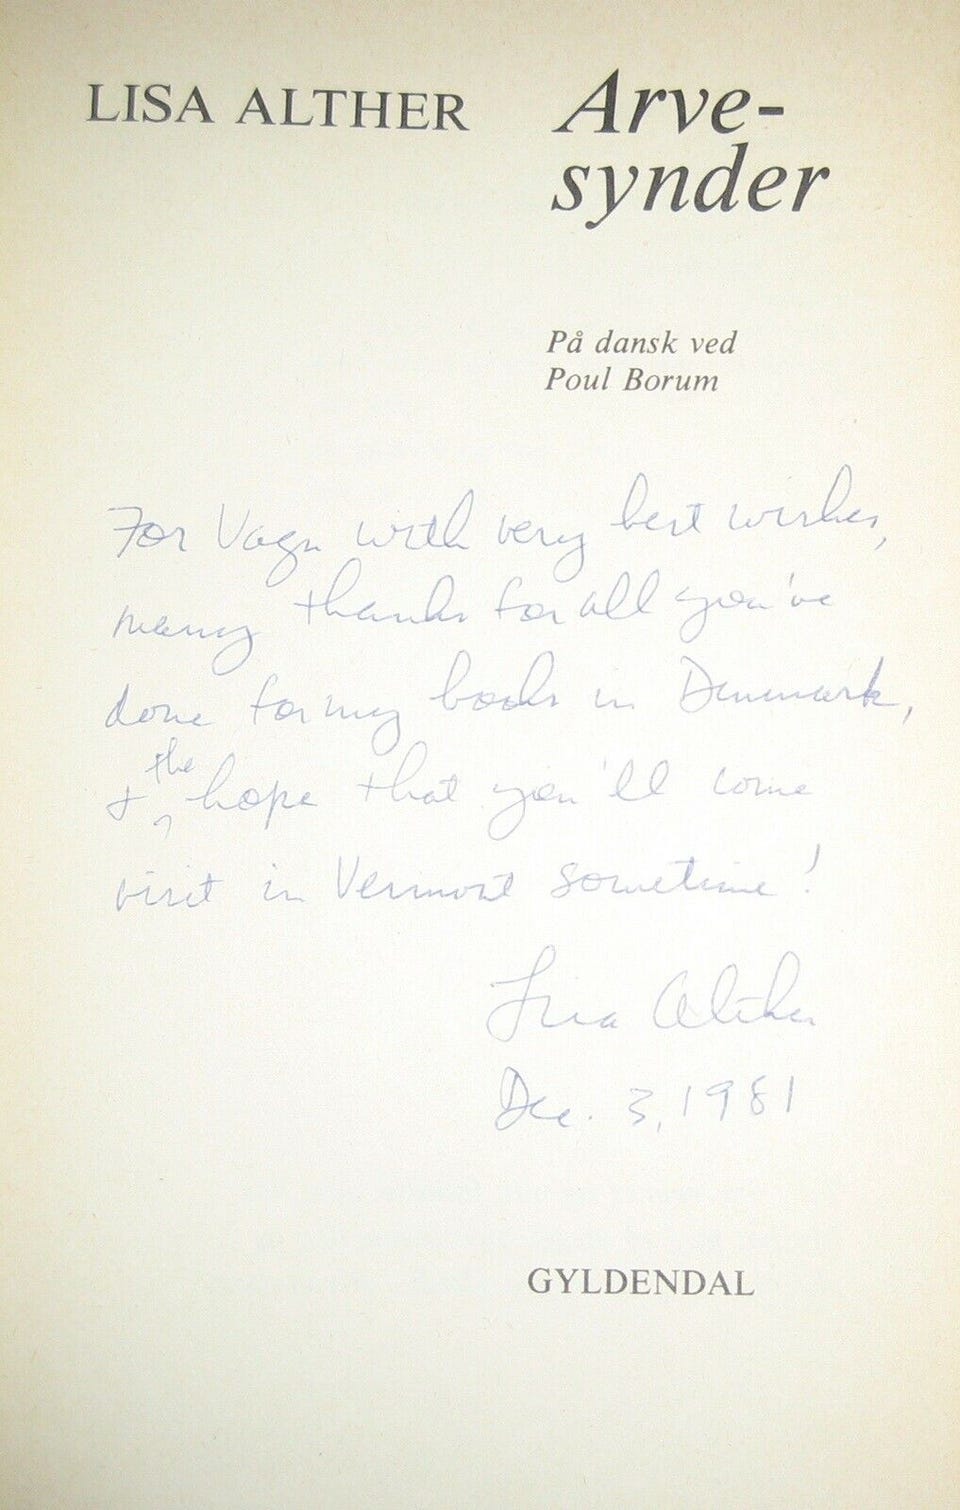 LISA ALTHER
Arve-
synder
På dansk ved
Poul Borum
For Vagn with very best wishes,
many thanks for all you've
done for my books in Denmark,
& the hope that you'll come
visit in Vermont sometime!
Lisa Alther
Dec. 3, 1981
GYLDENDAL